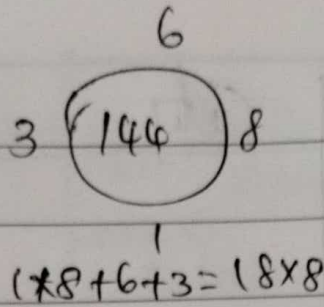 6
3 144 8
1
1*8+6+3=18×8